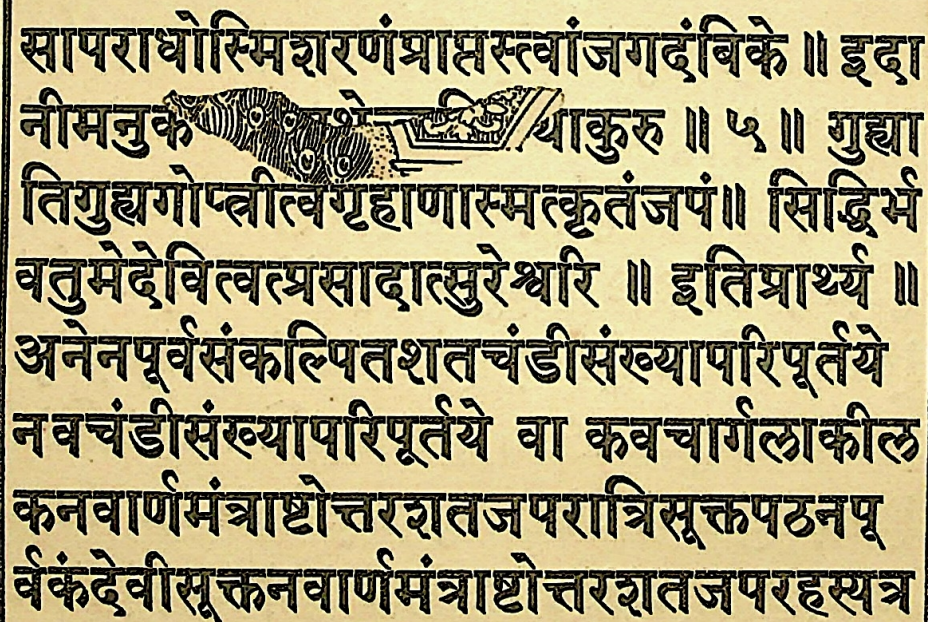 सापराधोस्मिशरणंप्राप्तस्त्वांजगदंबिके ॥ इदा
नीमनुक थाकुरु ॥ ५ ॥ गुह्या
तिगुह्यगोप्त्रीत्वगृहाणास्मत्कृतंजपं॥ सिद्धिर्भ
वतुमेदेवित्वत्प्रसादात्सुरेश्वरि ॥ इतिप्रार्थ्य ॥
अनेनपूर्वसंकल्पितशतचंडीसंख्यापरिपूर्तये
नवचंडीसंख्यापरिपूर्तये वा कवचार्गलाकील
कनवार्णमंत्राष्टोत्तरशतजपरात्रिसूक्तपठनपू
र्वकंदेवीसूक्तनवार्णमंत्राष्टोत्तरशतजपरहस्यत्र